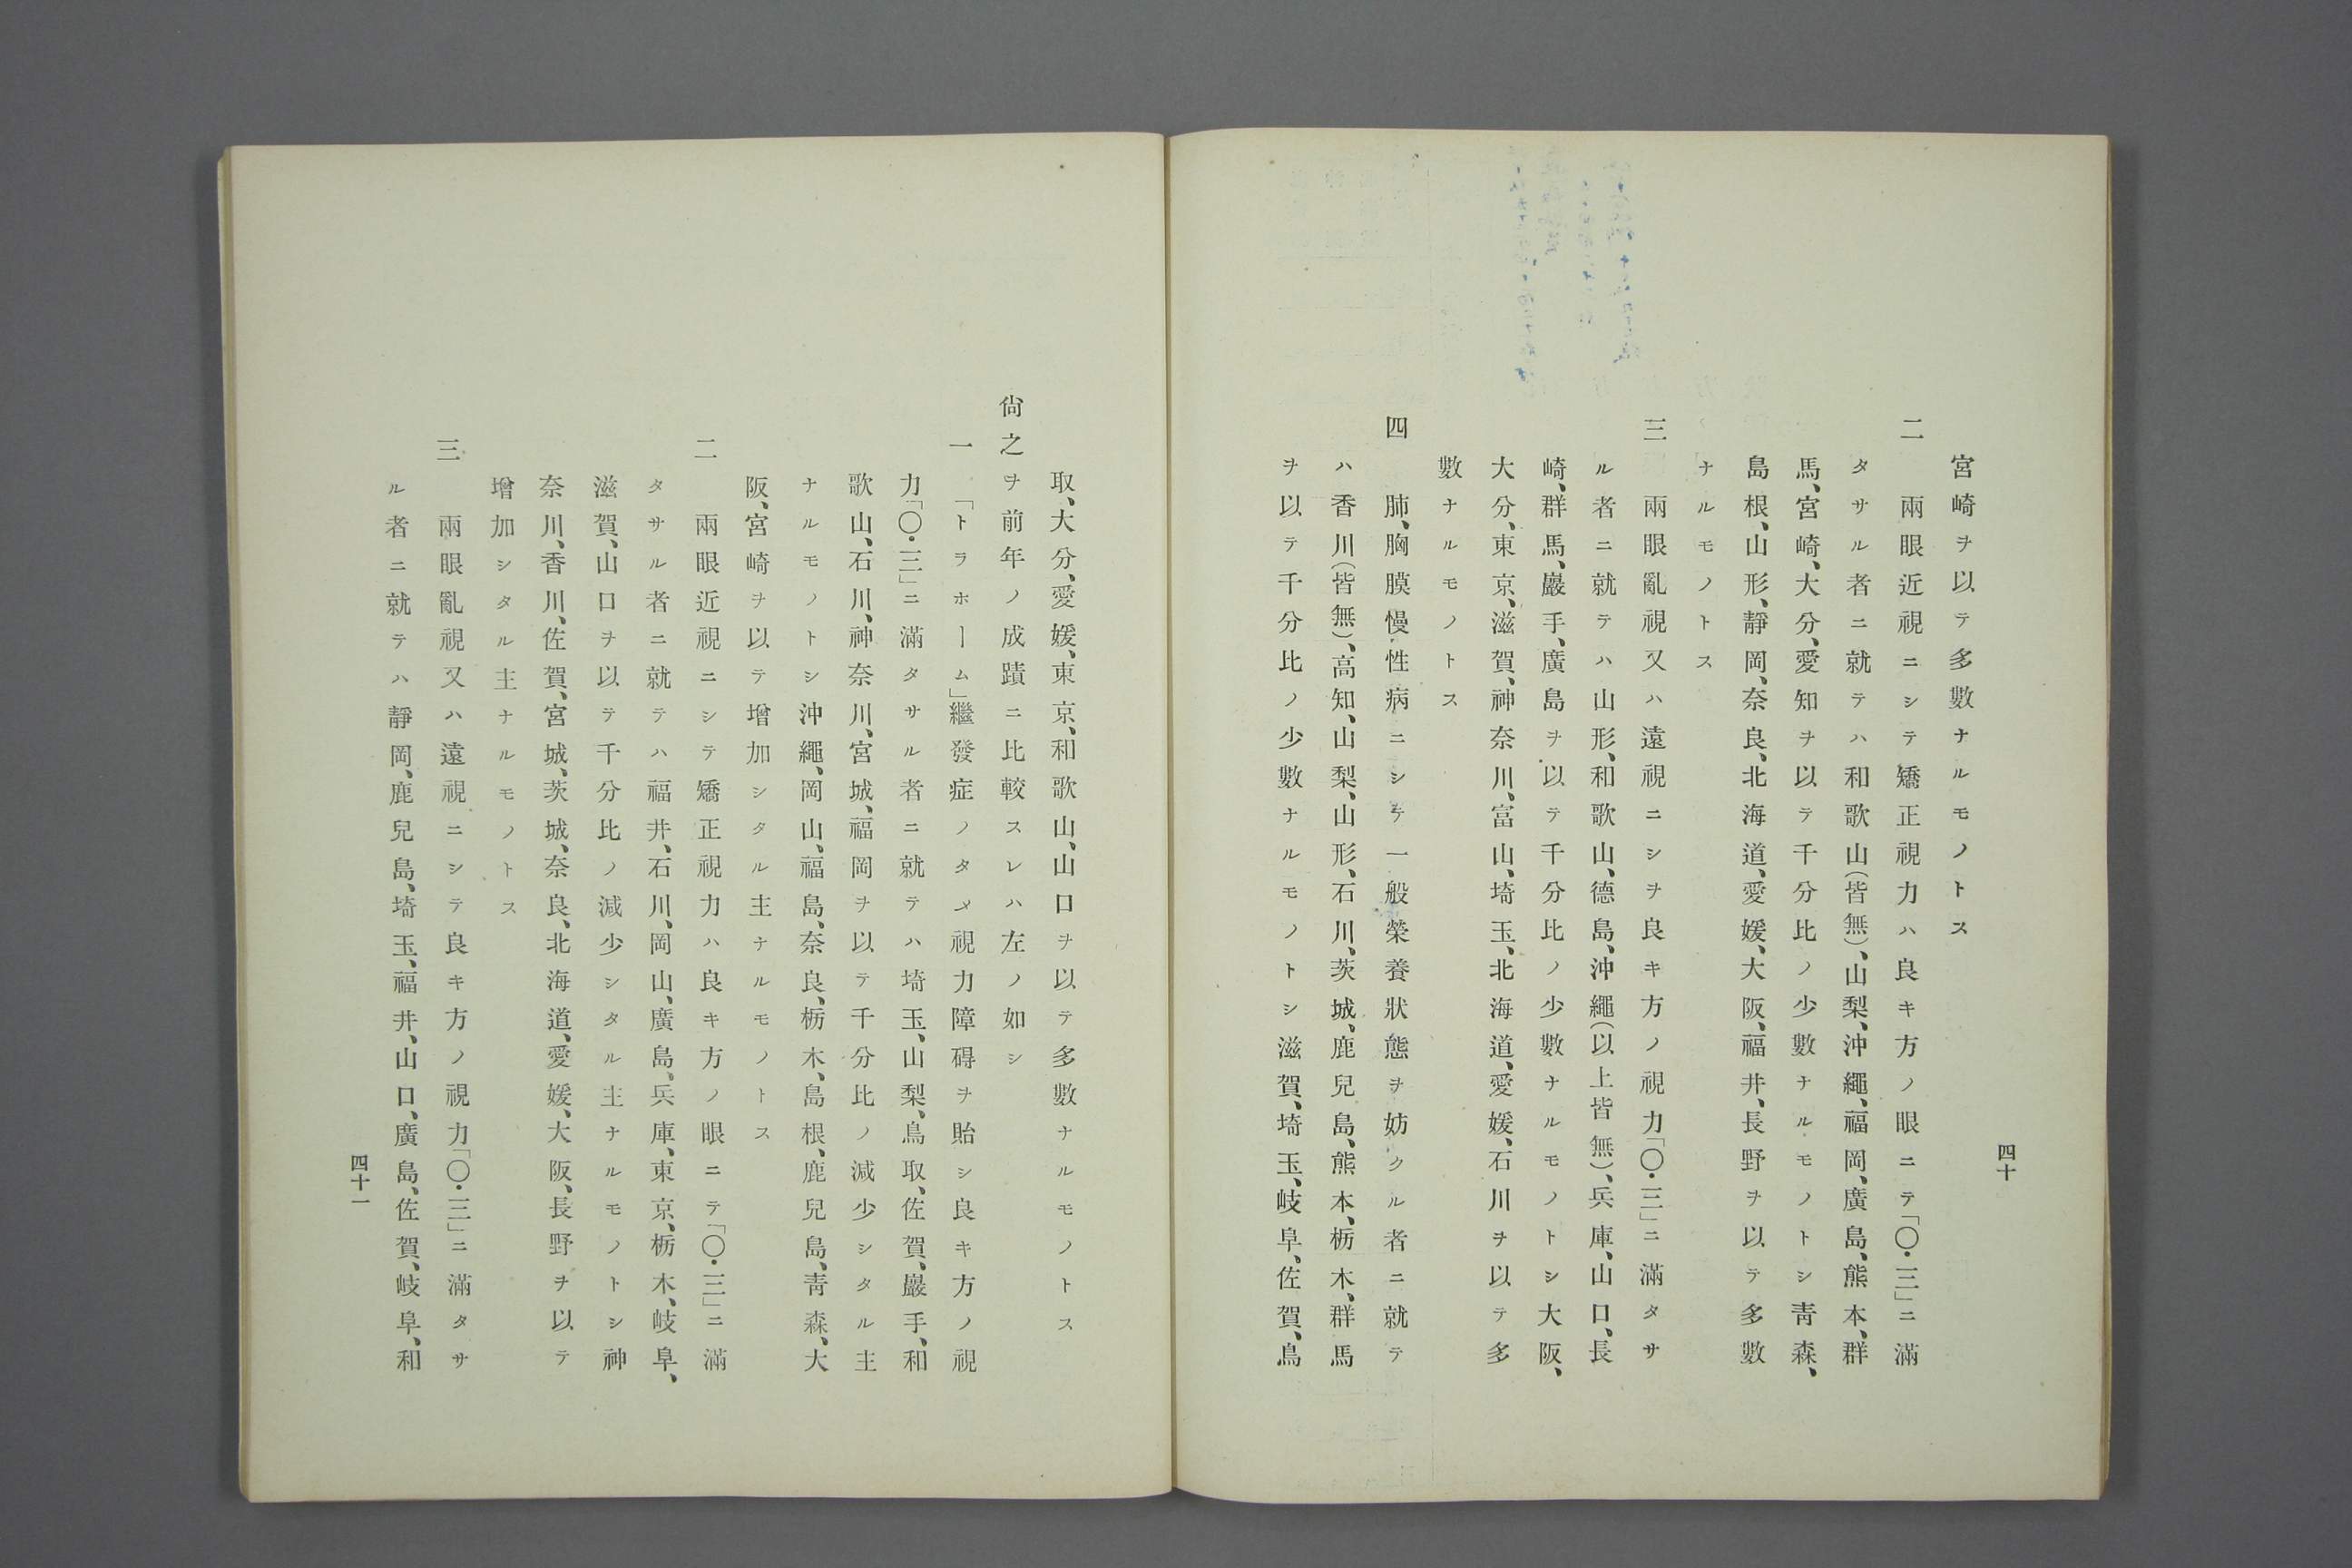 四十
宮崎ヲ以テ多數ナルモノトス
二　兩眼近視ニシテ矯正視力ハ良キ方ノ眼ニテ「〇・三」ニ滿
タサル者ニ就テハ和歌山(皆無)、山梨、沖繩、福岡、廣島、熊本、群
馬、宮崎、大分、愛知ヲ以テ千分比ノ少數ナルモノトシ靑森、
島根、山形、靜岡、奈良、北海道、愛媛、大阪、福井、長野ヲ以テ多數
ナルモノトス
三　兩眼亂視又ハ遠視ニシヲ良キ方ノ視力「〇・三」ニ滿タサ
ル者ニ就テハ山形、和歌山、德島、沖繩(以上皆無)、兵庫、山口、長
崎、群馬、巖手、廣島ヲ以テ千分比ノ少數ナルモノトシ大阪、
大分、東京、滋賀、神奈川、富山、埼玉、北海道、愛媛、石川ヲ以テ多
數ナルモノトス
四　肺、胸膜慢性病ニシテ一般榮養狀態ヲ妨クル者ニ就テ
ハ香川(皆無)、高知、山梨、山形、石川、茨城、鹿兒島、熊本、栃木、群馬
ヲ以テ千分比ノ少數ナルモノトシ滋賀、埼玉、岐阜、佐賀、鳥
取、大分、愛媛、東京、和歌山、山口ヲ以テ多數ナルモノトス
尙之ヲ前年ノ成蹟ニ比較スレハ左ノ如シ
一　「トラホーム」繼發症ノタメ視力障碍ヲ貽シ良キ方ノ視
力「〇・三」ニ滿タサル者ニ就テハ埼玉、山梨、鳥取、佐賀、巖手、和
歌山、石川、神奈川、宮城、福岡ヲ以テ千分比ノ減少シタル主
ナルモノトシ沖繩、岡山、福島、奈良、栃木、島根、鹿兒島、靑森、大
阪、宮崎ヲ以テ增加シタル主ナルモノトス
二　兩眼近視ニシテ矯正視力ハ良キ方ノ眼ニテ「〇・三」ニ滿
タサル者ニ就テハ福井、石川、岡山、廣島、兵庫、東京、栃木、岐阜、
滋賀、山口ヲ以テ千分比ノ減少シタル主ナルモノトシ神
奈川、香川、佐賀、宮城、茨城、奈良、北海道、愛媛、大阪、長野ヲ以テ
增加シタル主ナルモノトス
三　兩眼亂視又ハ遠視ニシテ良キ方ノ視力「〇・三」ニ滿タサ
ル者ニ就テハ靜岡、鹿兒島、埼玉、福井、山口、廣島、佐賀、岐阜、和
四十一